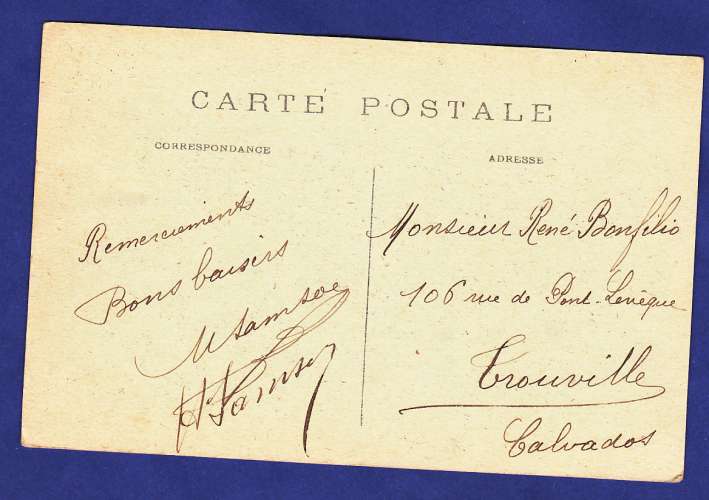 CARTE POSTALE
CORRESPONDANCE
ADRESSE
Remerciements
Bons baisers
Monsieur René Bonfilio
106 rue de Pont-Levêque
Trouville
Calvados